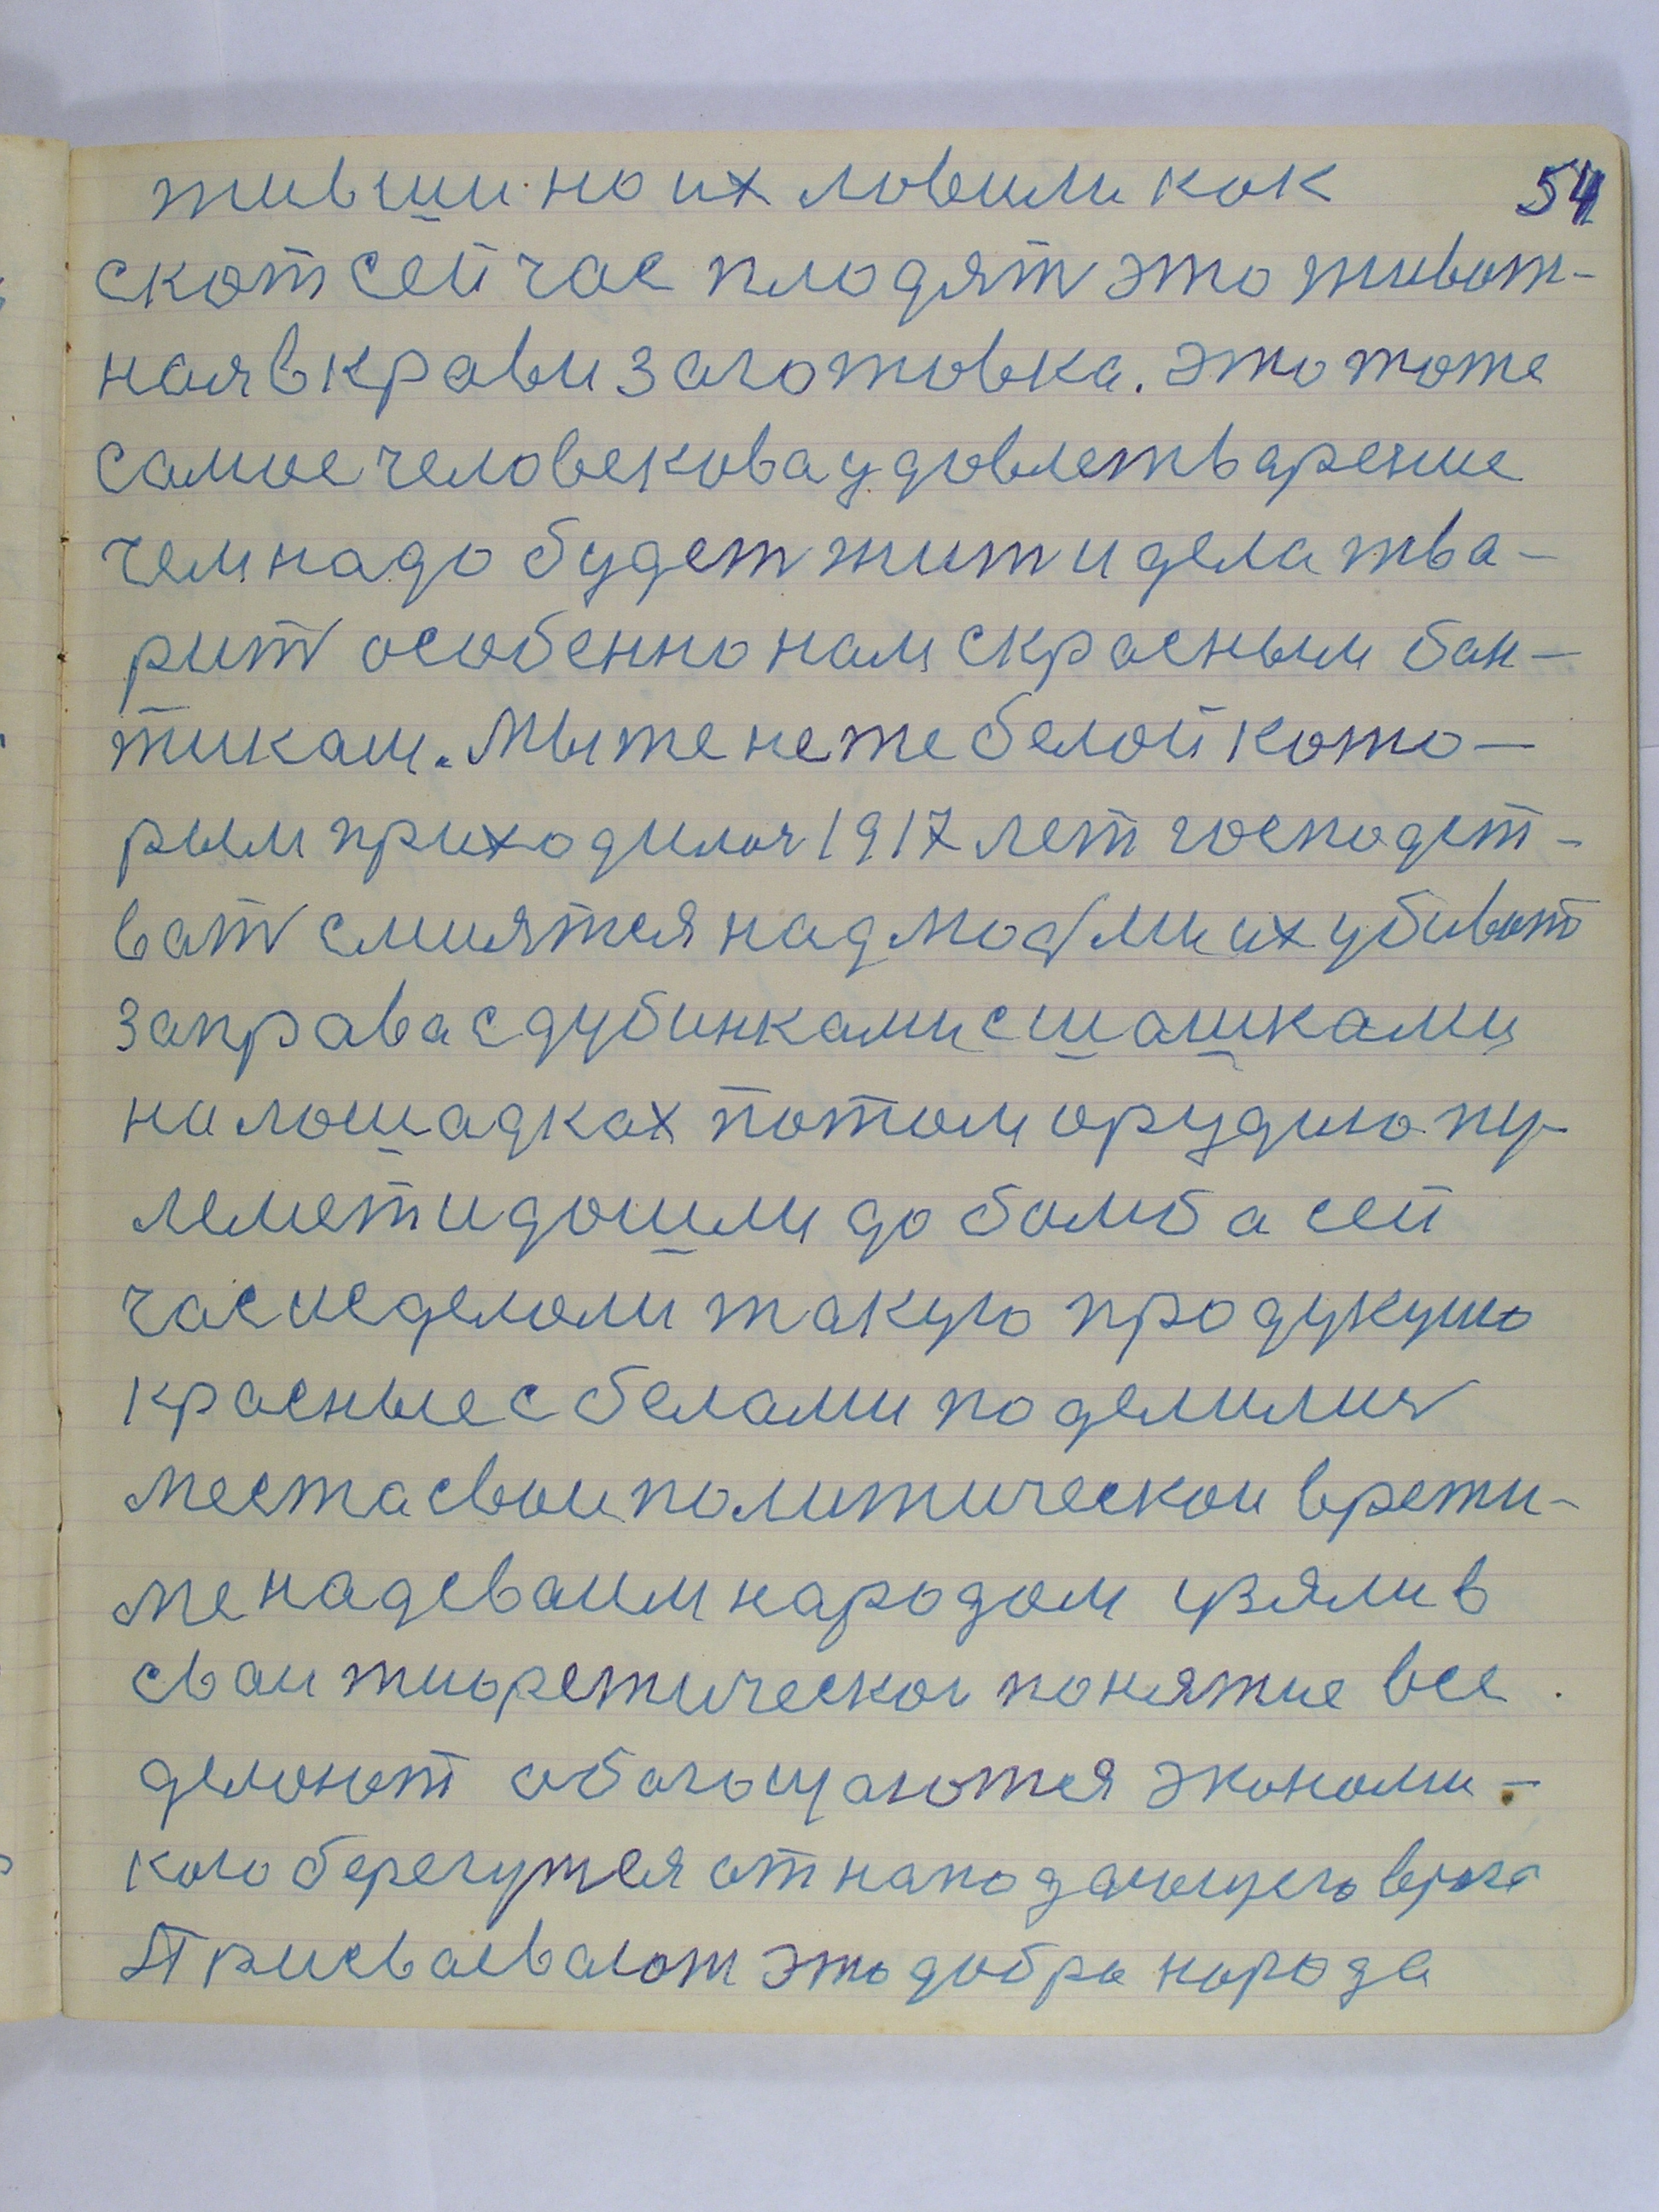 54
живши но их ловили как
скот сейчас плодят это живот-
ная в крави заготовка. Это тоже
самое человекова удовлетварение
чем надо будет жит и дела тва-
рит особенно нам скрасным бан-
тикам. Мы же не те белой кото-
рым приходилоя 1917 лет господст-
ват смиятся над людми их убиват
за права с дубинками с шашками
на лошадках потом орудию пу-
лемет и дошли до бомб а сей
час изделали такую продукцию
красные с белами поделилия
места свои политической в режи-
ме над сваим народом взяли в
сваи тиоретическои понятие все
делоют обагощаются экономи-
кою берегутся от нападающего врага
Присваевают это добра народа